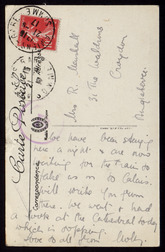 Carte Postale
Correspondance
Mrs R. Marshall
31 The Waldrons
Croydon
Angleterre
We have been staying
here a night & are now
waiting for the train to
take us on to Calais.
Will write you from
there. We went & had
a look at the Cathedral today
which is
love to all from